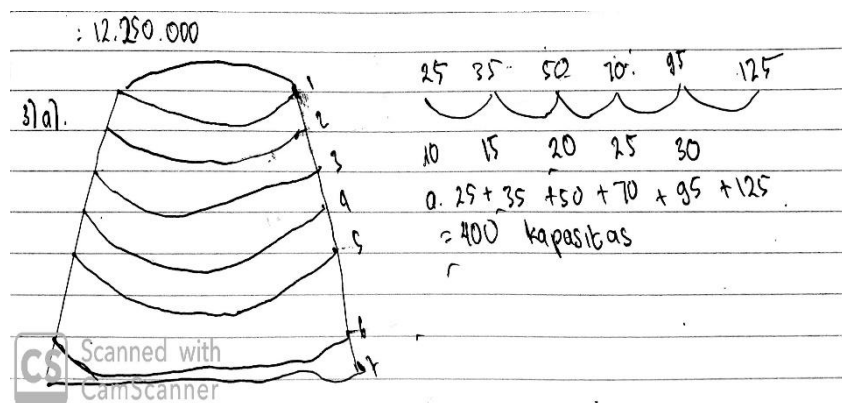 : 12.250.000
3) a).
1
2
3
4
5
6
7
25 35 50 70 95 125
10 15 20 25 30
a. 25 + 35 + 50 + 70 + 95 + 125
= 400 kapasitas
CS Scanned with
CamScanner